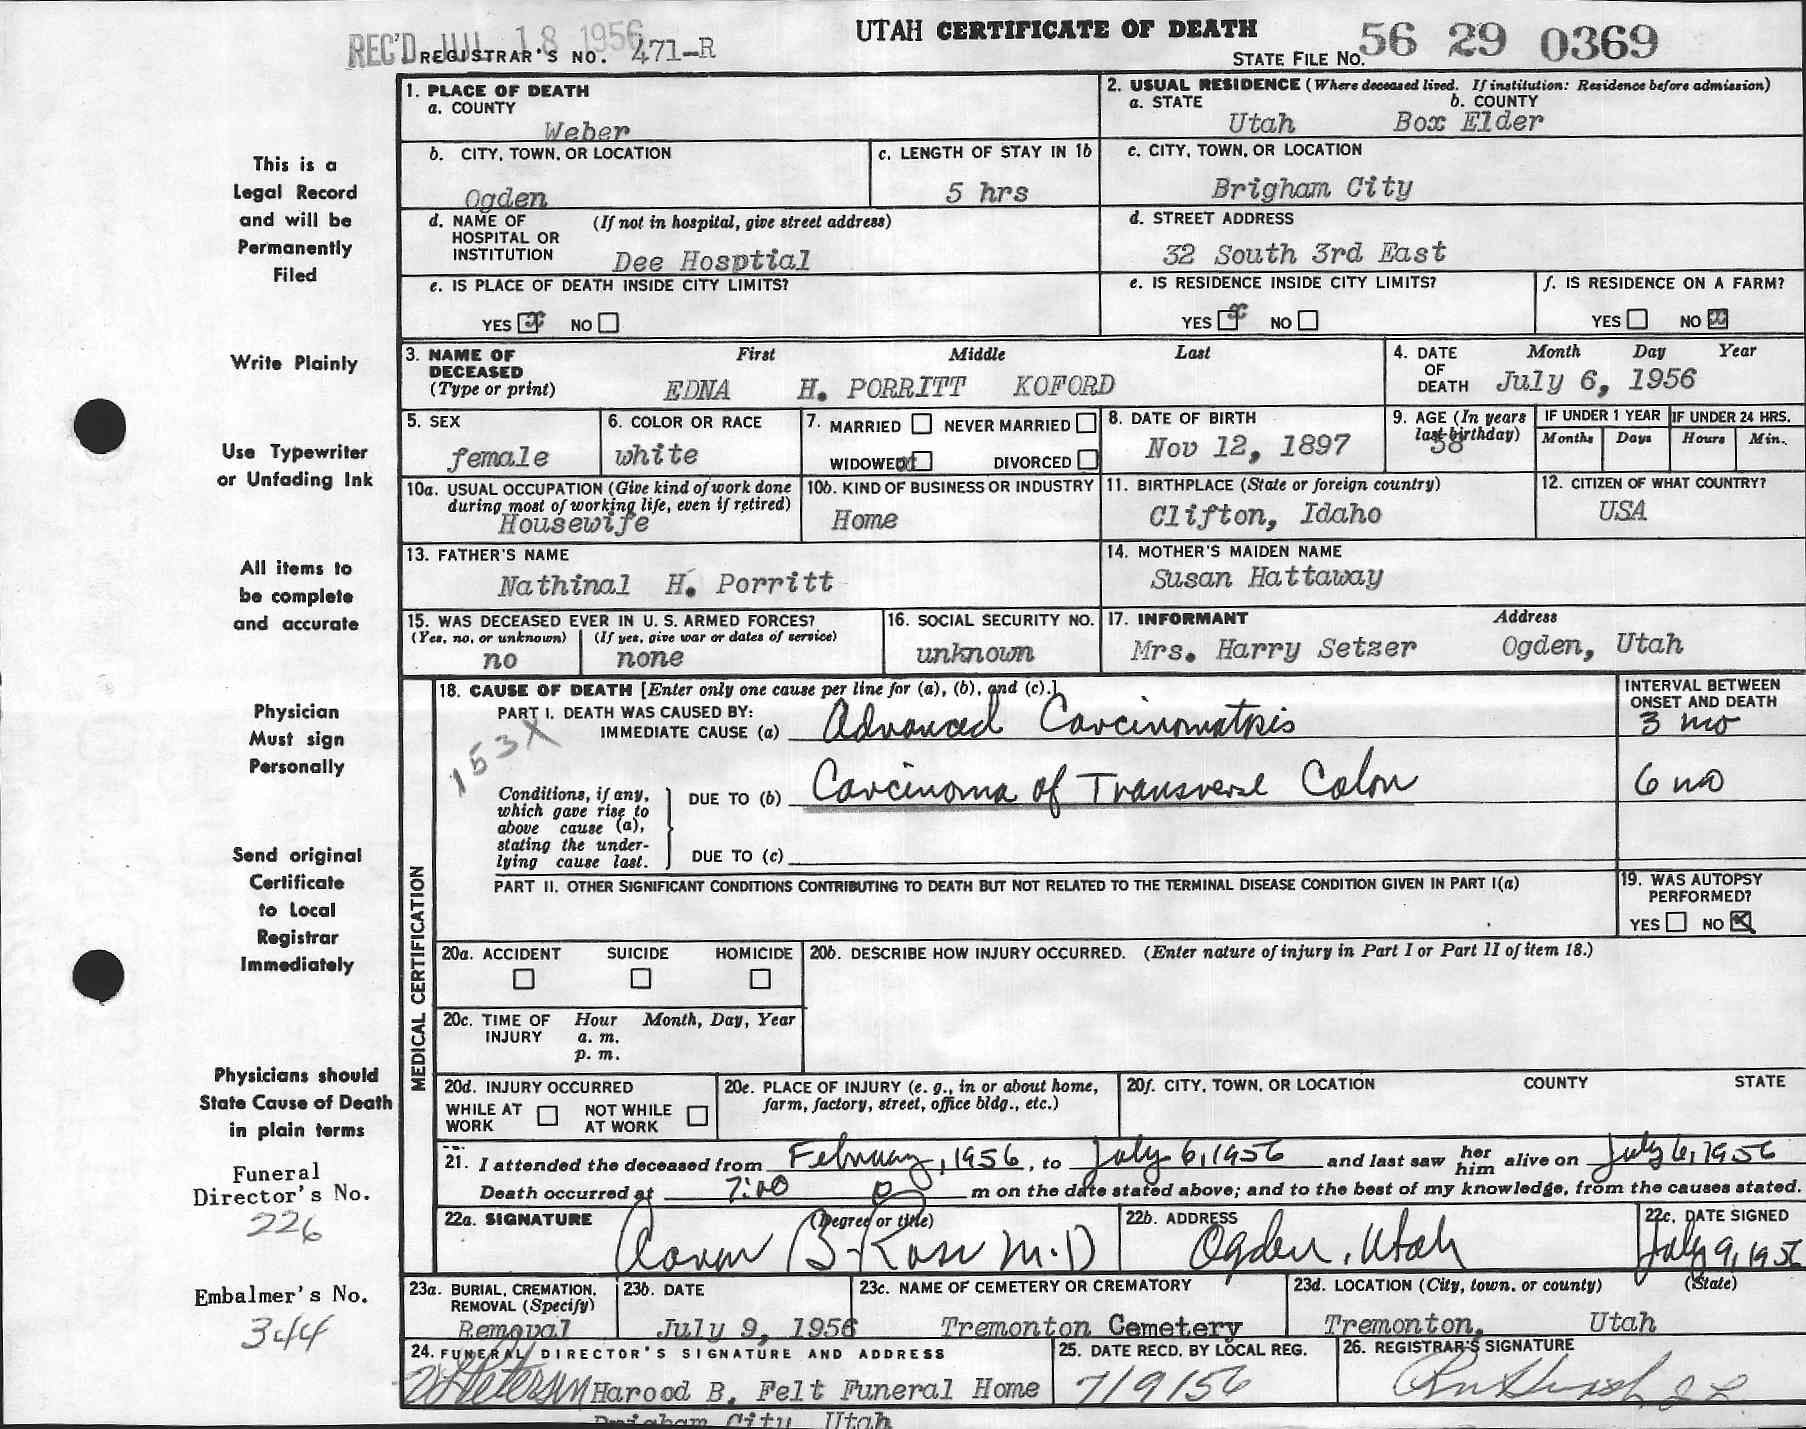 UTAH CERTIFICATE OF DEATH
REC'D JUL 18 1956
REGISTRAR'S NO. 471-R
STATE FILE NO. 56 29 0369
This is a
Legal Record
and will be
Permanently
Filed
Write Plainly
Use Typewriter
or Unfading Ink
All items to
be complete
and accurate
Physician
Must sign
Personally
Send original
Certificate
to Local
Registrar
Immediately
Physicians should
State Cause of Death
in plain terms
Funeral
Director's No.
226
Embalmer's No.
344
1. PLACE OF DEATH
a. COUNTY
Weber
2. USUAL RESIDENCE (Where deceased lived. If institution: Residence before admission)
a. STATE b. COUNTY
Utah Box Elder
b. CITY, TOWN, OR LOCATION
Ogden
c. LENGTH OF STAY IN 1b
5 hrs
c. CITY, TOWN, OR LOCATION
Brigham City
d. NAME OF (If not in hospital, give street address)
HOSPITAL OR
INSTITUTION Dee Hosptial
d. STREET ADDRESS
32 South 3rd East
e. IS PLACE OF DEATH INSIDE CITY LIMITS?
YES x NO
e. IS RESIDENCE INSIDE CITY LIMITS?
YES x NO
f. IS RESIDENCE ON A FARM?
YES NO x
3. NAME OF First Middle Last
DECEASED
(Type or print) EDNA H. PORRITT KOFORD
4. DATE Month Day Year
OF
DEATH July 6, 1956
5. SEX
female
6. COLOR OR RACE
white
7. MARRIED NEVER MARRIED
WIDOWED x DIVORCED
8. DATE OF BIRTH
Nov 12, 1897
9. AGE (In years
last birthday)
58
IF UNDER 1 YEAR IF UNDER 24 HRS.
Months Days Hours Min.
10a. USUAL OCCUPATION (Give kind of work done
during most of working life, even if retired)
Housewife
10b. KIND OF BUSINESS OR INDUSTRY
Home
11. BIRTHPLACE (State or foreign country)
Clifton, Idaho
12. CITIZEN OF WHAT COUNTRY?
USA
13. FATHER'S NAME
Nathinal H. Porritt
14. MOTHER'S MAIDEN NAME
Susan Hattaway
15. WAS DECEASED EVER IN U. S. ARMED FORCES?
(Yes, no, or unknown) (If yes, give war or dates of service)
no none
16. SOCIAL SECURITY NO.
unknown
17. INFORMANT Address
Mrs. Harry Setzer Ogden, Utah
MEDICAL CERTIFICATION
18. CAUSE OF DEATH [Enter only one cause per line for (a), (b), and (c).]
PART I. DEATH WAS CAUSED BY:
IMMEDIATE CAUSE (a) Advanced Carcinomatosis
153X
Conditions, if any,
which gave rise to
above cause (a),
stating the under-
lying cause last.
DUE TO (b) Carcinoma of Transverse Colon
DUE TO (c)
INTERVAL BETWEEN
ONSET AND DEATH
3 mo
6 mo
PART II. OTHER SIGNIFICANT CONDITIONS CONTRIBUTING TO DEATH BUT NOT RELATED TO THE TERMINAL DISEASE CONDITION GIVEN IN PART I(a)
19. WAS AUTOPSY
PERFORMED?
YES NO x
20a. ACCIDENT SUICIDE HOMICIDE
20b. DESCRIBE HOW INJURY OCCURRED. (Enter nature of injury in Part I or Part II of item 18.)
20c. TIME OF Hour Month, Day, Year
INJURY a. m.
p. m.
20d. INJURY OCCURRED
WHILE AT NOT WHILE
WORK AT WORK
20e. PLACE OF INJURY (e. g., in or about home,
farm, factory, street, office bldg., etc.)
20f. CITY, TOWN, OR LOCATION COUNTY STATE
21. I attended the deceased from February, 1956, to July 6, 1956 and last saw her him alive on July 6, 1956
Death occurred at 7:00 p m on the date stated above; and to the best of my knowledge, from the causes stated.
22a. SIGNATURE (Degree or title)
B. M.D
22b. ADDRESS
Ogden, Utah
22c. DATE SIGNED
July 9, 1956
23a. BURIAL, CREMATION,
REMOVAL (Specify)
Removal
23b. DATE
July 9, 1956
23c. NAME OF CEMETERY OR CREMATORY
Tremonton Cemetery
23d. LOCATION (City, town, or county) (State)
Tremonton, Utah
24. FUNERAL DIRECTOR'S SIGNATURE AND ADDRESS
Harood B. Felt Funeral Home
Brigham City, Utah
25. DATE RECD. BY LOCAL REG.
7/9/56
26. REGISTRAR'S SIGNATURE